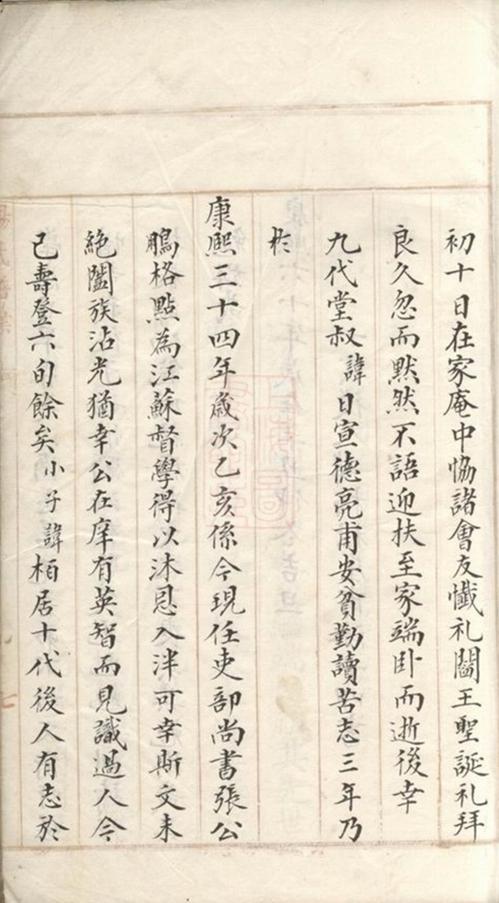 初十日在家庵中恊諸會友懺礼閻王聖誕礼拜
良久忽而默然不語迎扶至家端卧而逝後幸
九代堂叔諱日宣德亮甫安貧勤讀苦志三年乃
於
康熙三十四年歲次乙亥係今現任吏部尚書張公
鵬格點為江蘇督學得以沐恩入泮可幸斯文未
絶闔族沾光猶幸公在庠有英智而見識過人今
已壽登六旬餘矣小子諱栢居十代後人有志於